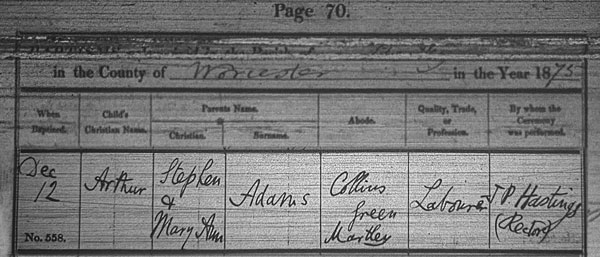 Page 70.
in the County of Worcester in the Year 1875
When Baptized. Child's Christian Name. Parents Name. Christian. Surname. Abode. Quality, Trade, or Profession. By whom the Ceremony was performed.
Dec 12 Arthur Stephen & Mary Ann Adams Collins Green Martley Labourer J P Hastings (Rector)
No. 558.